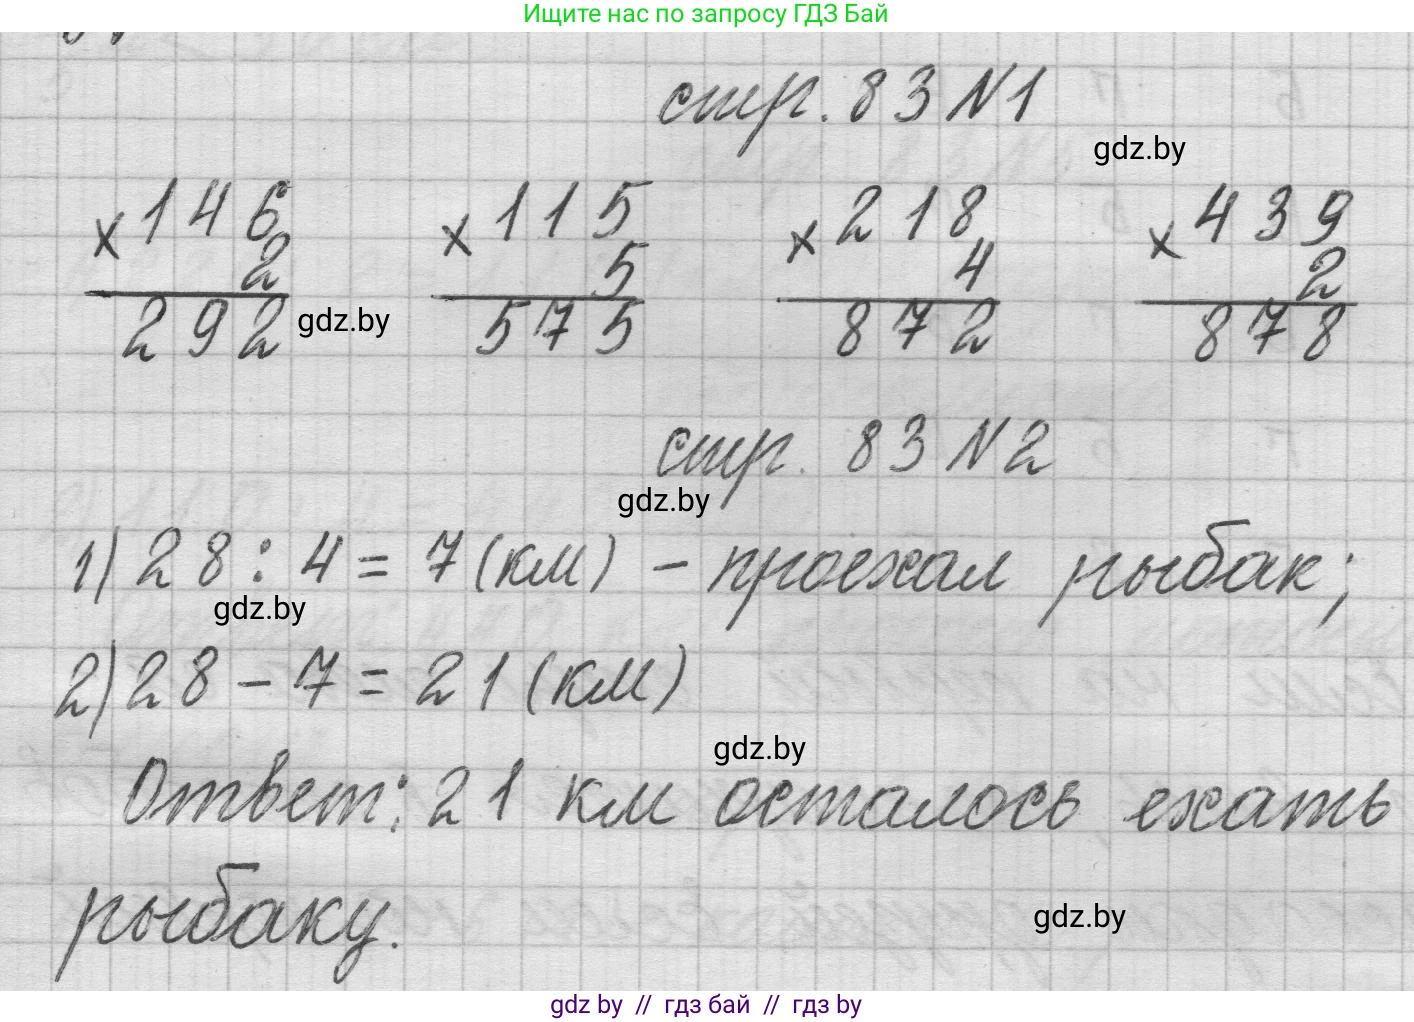 Ищите нас по запросу ГДЗ Бай
стр. 83 N1
gdz.by
× 146 × 115 × 218 × 439
2 5 4 2
292 575 872 878
gdz.by
стр. 83 N2
gdz.by
1) 28 : 4 = 7 (км) – проехал рыбак;
gdz.by
2) 28 – 7 = 21 (км)
gdz.by
Ответ: 21 км осталось ехать
рыбаку.
gdz.by
gdz by // гдз бай // гдз by